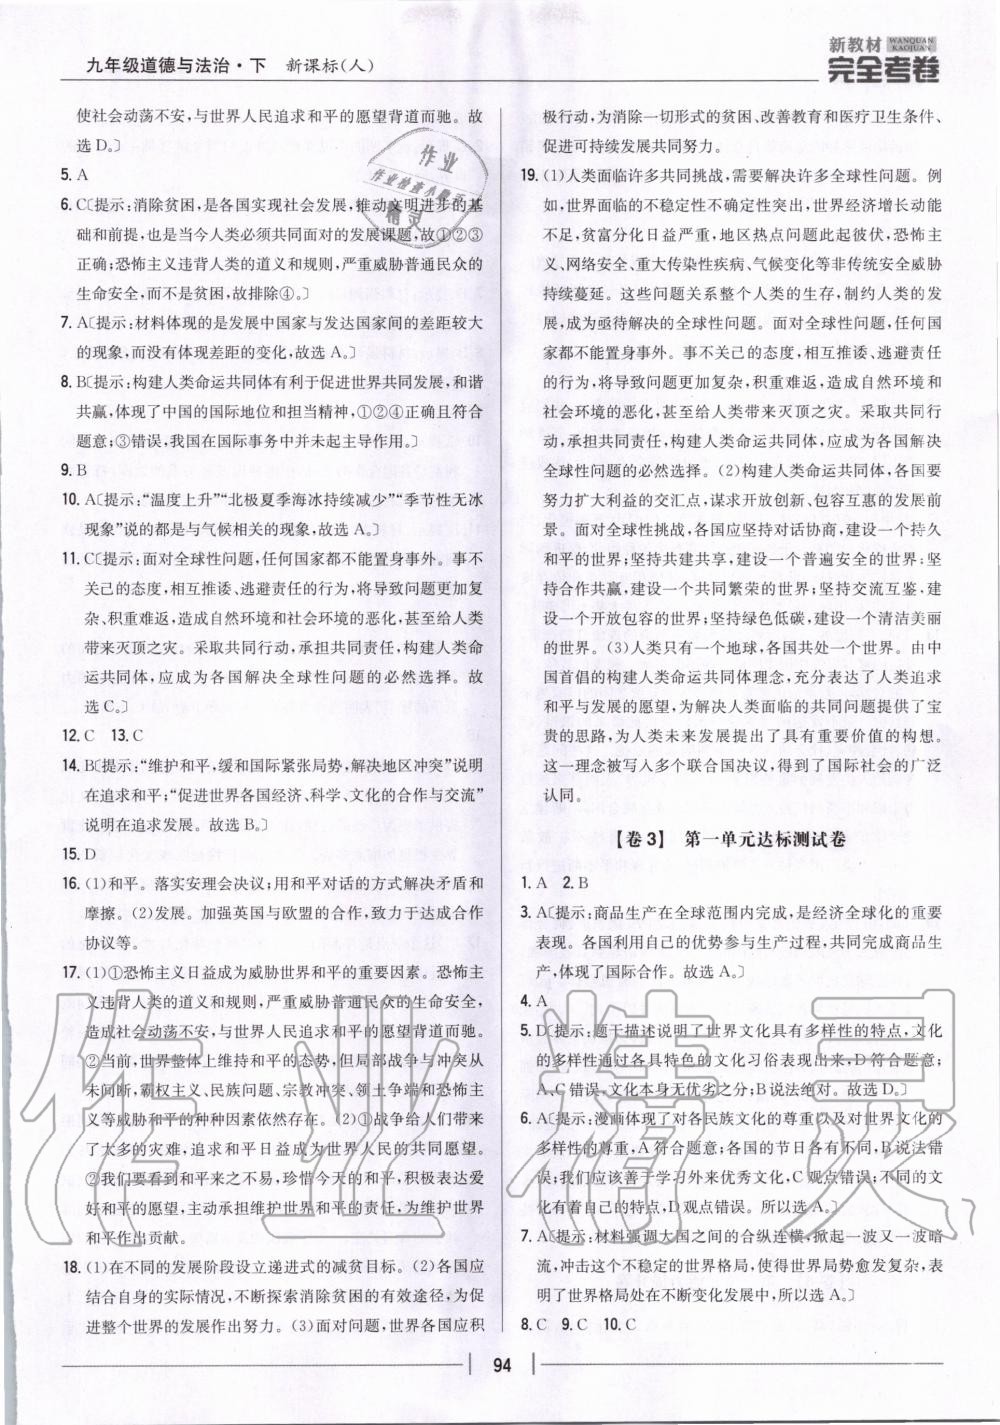 九年级道德与法治·下 新课标(人)
新教材 WANQUAN KAOJUAN
完全考卷
使社会动荡不安,与世界人民追求和平的愿望背道而驰。故
选D。〕
5. A
6. C〔提示:消除贫困,是各国实现社会发展,推动文明进步的基
础和前提,也是当今人类必须共同面对的发展课题,故①②③
正确;恐怖主义违背人类的道义和规则,严重威胁普通民众的
生命安全,而不是贫困,故排除④。〕
7. A〔提示:材料体现的是发展中国家与发达国家间的差距较大
的现象,而没有体现差距的变化,故选 A。〕
8. B〔提示:构建人类命运共同体有利于促进世界共同发展,和谐
共赢,体现了中国的国际地位和担当精神,①②④正确且符合
题意;③错误,我国在国际事务中并未起主导作用。〕
9. B
10. A〔提示:“温度上升”“北极夏季海冰持续减少”“季节性无冰
现象”说的都是与气候相关的现象,故选 A。〕
11. C〔提示:面对全球性问题,任何国家都不能置身事外。事不
关己的态度,相互推诿、逃避责任的行为,将导致问题更加复
杂、积重难返,造成自然环境和社会环境的恶化,甚至给人类
带来灭顶之灾。采取共同行动,承担共同责任,构建人类命
运共同体,应成为各国解决全球性问题的必然选择。故
选 C。〕
12. C 13. C
14. B〔提示:“维护和平,缓和国际紧张局势,解决地区冲突”说明
在追求和平;“促进世界各国经济、科学、文化的合作与交流”
说明在追求发展。故选 B。〕
15. D
16. (1)和平。落实安理会决议;用和平对话的方式解决矛盾和
摩擦。(2)发展。加强英国与欧盟的合作,致力于达成合作
协议等。
17. (1)①恐怖主义日益成为威胁世界和平的重要因素。恐怖主
义违背人类的道义和规则,严重威胁普通民众的生命安全,
造成社会动荡不安,与世界人民追求和平的愿望背道而驰。
②当前,世界整体上维持和平的态势,但局部战争与冲突从
未间断,霸权主义、民族问题、宗教冲突、领土争端和恐怖主
义等威胁和平的种种因素依然存在。(2)①战争给人们带来
了太多的灾难,追求和平日益成为世界人民的共同愿望。
②我们要看到和平来之不易,珍惜今天的和平,积极表达爱
好和平的愿望,主动承担维护世界和平的责任,为维护世界
和平作出贡献。
18. (1)在不同的发展阶段设立递进式的减贫目标。(2)各国应
结合自身的实际情况,不断探索消除贫困的有效途径,为促
进整个世界的发展作出努力。(3)面对问题,世界各国应积
极行动,为消除一切形式的贫困、改善教育和医疗卫生条件、
促进可持续发展共同努力。
19. (1)人类面临许多共同挑战,需要解决许多全球性问题。例
如,世界面临的不稳定性不确定性突出,世界经济增长动能
不足,贫富分化日益严重,地区热点问题此起彼伏,恐怖主
义、网络安全、重大传染性疾病、气候变化等非传统安全威胁
持续蔓延。这些问题关系整个人类的生存,制约人类的发
展,成为亟待解决的全球性问题。面对全球性问题,任何国
家都不能置身事外。事不关己的态度,相互推诿、逃避责任
的行为,将导致问题更加复杂,积重难返,造成自然环境和
社会环境的恶化,甚至给人类带来灭顶之灾。采取共同行
动,承担共同责任,构建人类命运共同体,应成为各国解决
全球性问题的必然选择。(2)构建人类命运共同体,各国要
努力扩大利益的交汇点,谋求开放创新、包容互惠的发展前
景。面对全球性挑战,各国应坚持对话协商,建设一个持久
和平的世界;坚持共建共享,建设一个普遍安全的世界;坚
持合作共赢,建设一个共同繁荣的世界;坚持交流互鉴,建
设一个开放包容的世界;坚持绿色低碳,建设一个清洁美丽
的世界。(3)人类只有一个地球,各国共处一个世界。由中
国首倡的构建人类命运共同体理念,充分表达了人类追求
和平与发展的愿望,为解决人类面临的共同问题提供了宝
贵的思路,为人类未来发展提出了具有重要价值的构想。
这一理念被写入多个联合国决议,得到了国际社会的广泛
认同。
【卷 3】 第一单元达标测试卷
1. A 2. B
3. A〔提示:商品生产在全球范围内完成,是经济全球化的重要
表现。各国利用自己的优势参与生产过程,共同完成商品生
产,体现了国际合作。故选 A。〕
4. A
5. D〔提示:题干描述说明了世界文化具有多样性的特点,文化
的多样性通过各具特色的文化习俗表现出来,D 符合题意;
A、C 错误,文化本身无优劣之分;B 说法绝对。故选 D。〕
6. A〔提示:漫画体现了对各民族文化的尊重以及对世界文化的
多样性的尊重,A 符合题意;各国的节日各有不同,B 说法错
误;我们应该善于学习外来优秀文化,C 观点错误;不同的文
化有着自己的特点,D 观点错误。所以选 A。〕
7. A〔提示:材料强调大国之间的合纵连横,掀起一波又一波暗
流,冲击这个不稳定的世界格局,使得世界局势愈发复杂,表
明了世界格局处在不断变化发展中,所以选 A。〕
8. C 9. C 10. C
94
作业
作业检查小能手
精灵
作业精灵